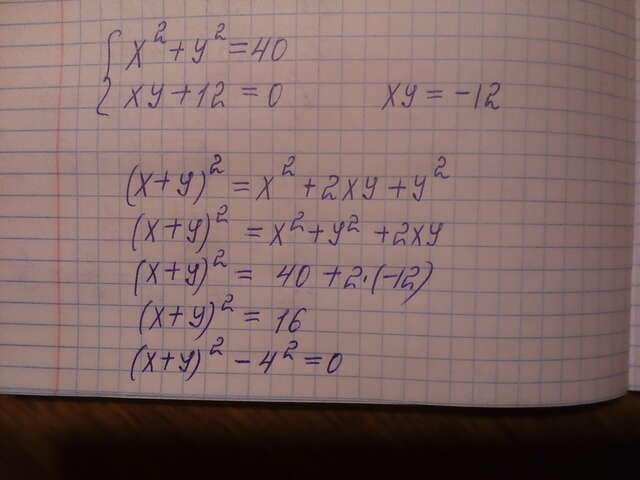 { x² + y² = 40
xy + 12 = 0 xy = -12
(x+y)² = x² + 2xy + y²
(x+y)² = x² + y² + 2xy
(x+y)² = 40 + 2·(-12)
(x+y)² = 16
(x+y)² - 4² = 0